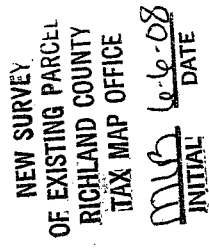 NEW SURVEY
OF EXISTING PARCEL
RICHLAND COUNTY
TAX MAP OFFICE
MLB 6-6-08
INITIAL DATE